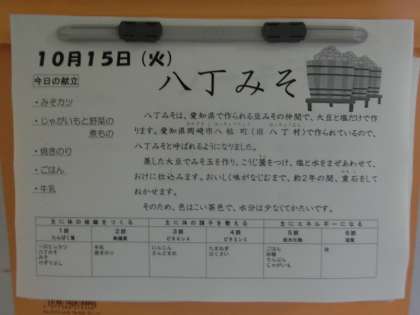 10月15日（火）
八丁みそ
今日の献立
・みそカツ
・じゃがいもと野菜の
煮もの
・焼きのり
・ごはん
・牛乳
八丁みそは、愛知県で作られる豆みその仲間で、大豆と塩だけで作
ります。愛知県岡崎市八帖町（旧八丁村）で作られているので、
八丁みそと呼ばれるようになりました。
蒸した大豆でみそ玉を作り、こうじ菌をつけ、塩と水をまぜあわせて、
おけに仕込みます。おいしく味がなじむまで、約2年の間、重石をして
おかせます。
そのため、色はこい茶色で、水分は少なくてかたいです。
主に体の組織をつくる
主に体の調子を整える
主にエネルギーになる
1群
2群
3群
4群
5群
6群
たんぱく質
無機質
ビタミンA
ビタミンC
炭水化物
脂質
牛乳
焼きのり
にんじん
さんどまめ
たまねぎ
ごはん
砂糖
でんぷん
じゃがいも
油